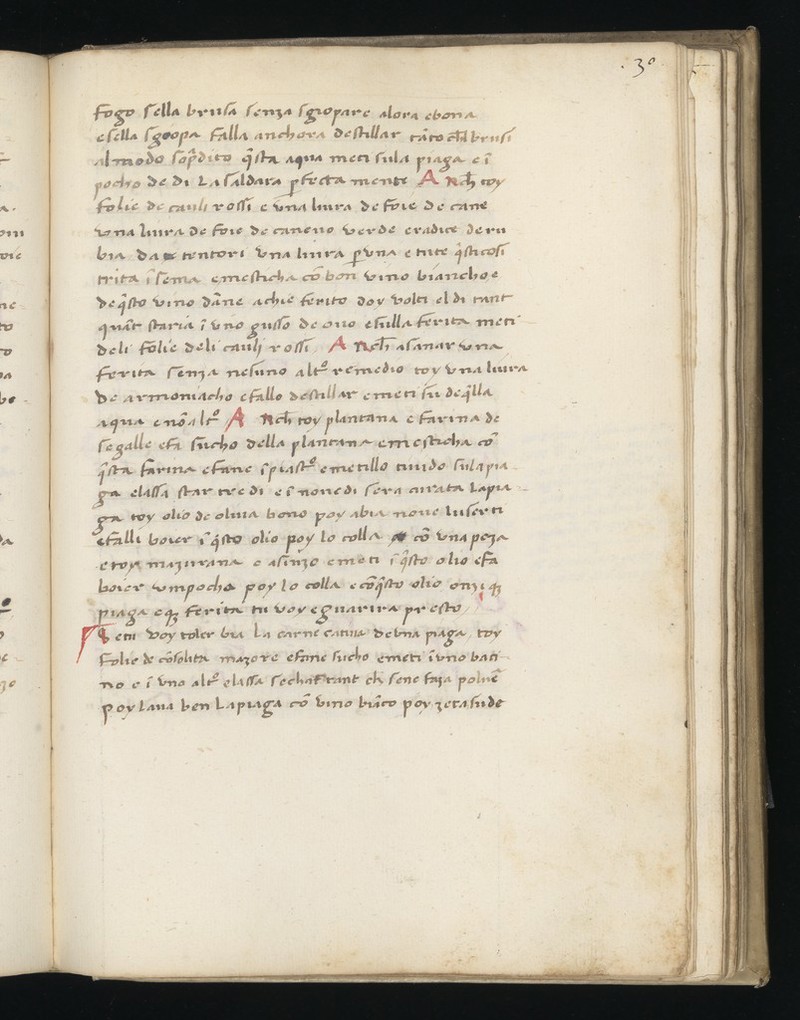 · 30
fogo sella brusa senza sgropare alora ebona
esella sgropa falla anchora destillar tãto ch̃l brusi
almodo sop̃dito q̃sta aqua meti sula piaga e ĩ
pocho de di La saldara p̱fecta mente A Nch̃ toy
folie de cauli rossi e vna liura de foie de cane
vona liura de foie de caneuo verde eradice deru
bia da tentori vna liura p̱vna e tute q̃sticosi
trita ĩsema emesticha cõ bon vino biancho e
deq̃sto vino dane achie ferito doy volti eldi tant
quãt staria ĩ vno gusso de ouo esulla ferita meti
deli folie deli cauli rossi A Nch̃ asanar vna
ferita senza nesuno altº remedio toy vna liura
de armoniacho efallo destillar emeti su deq̃lla
aqua enõ altº A Nch̃ toy plantana e farina de
segalle efa sucho della plantana emesticha cõ
q̃sta farina efane ĩpiastº emetillo tiuido sulapia
ga elassa star tredi eĩ nouedi sera curata Lapia
ga toy olio de oliua bono poy abia noue luserti
efalli boier ĩ q̃sto olio poy lo colla cõ vna peza
etoy mazurana e asinzo emeti ĩ q̃sto olio efa
boier vmpocho poy lo colla ecõq̃sto olio onzi qʒ
piaga eqʒ ferita tu voy eguarira presto
Setu voy toler bia La carne catiua devna piaga toy
folie de cõsolita mazore efane sucho emeti ĩvno baci
no e ĩ vno altº elassa sechar tant ch̃ sene faza poluẽ
poy laua ben Lapiaga cõ vino biãco poy zetasude